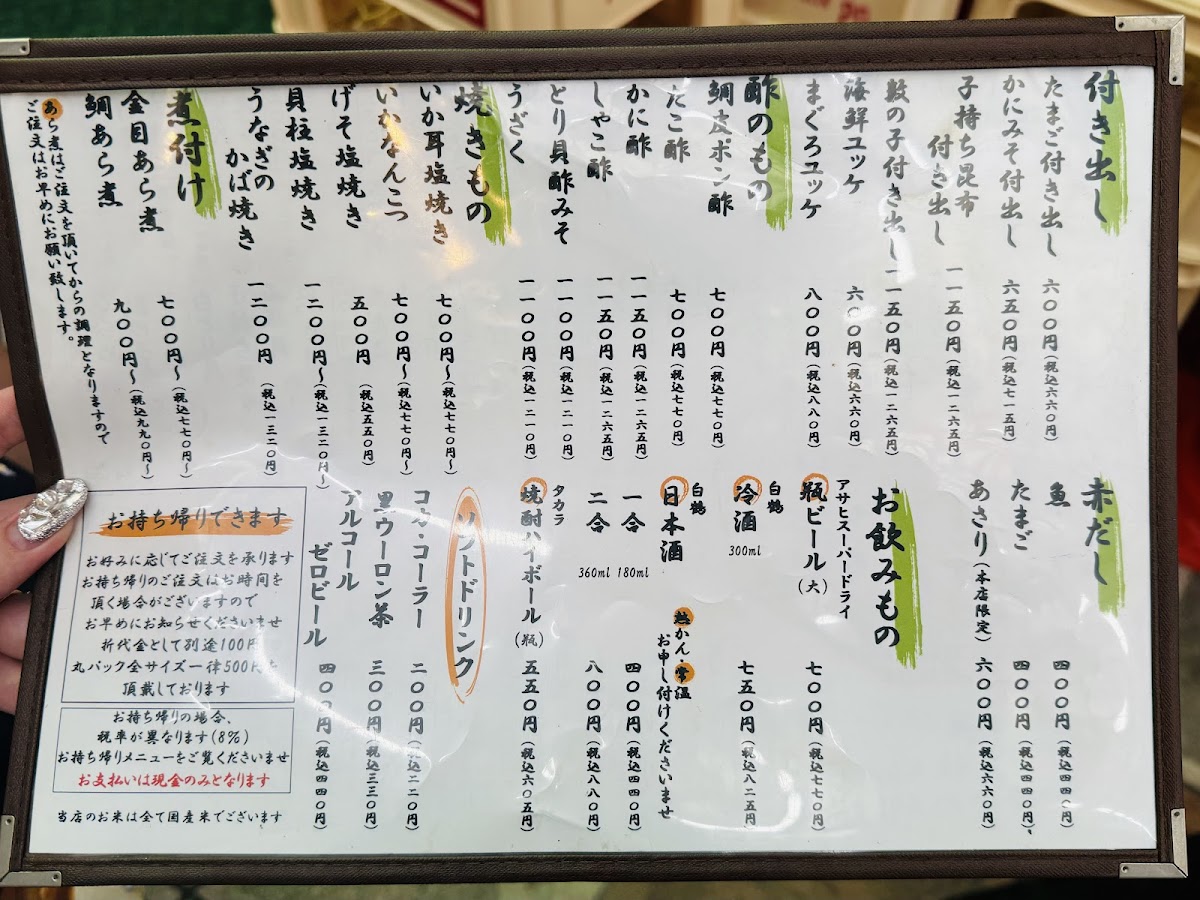 付き出し
たまご付き出し 六〇〇円(税込六六〇円)
かにみそ付出し 六五〇円(税込七一五円)
子持ち昆布
付き出し 一一五〇円(税込一二六五円)
数の子付き出し 一一五〇円(税込一二六五円)
海鮮ユッケ 六〇〇円(税込六六〇円)
まぐろユッケ 八〇〇円(税込八八〇円)
酢のもの
鯛皮ポン酢 七〇〇円(税込七七〇円)
たこ酢 七〇〇円(税込七七〇円)
かに酢 一一五〇円(税込一二六五円)
しゃこ酢 一一五〇円(税込一二六五円)
とり貝酢みそ 一一〇〇円(税込一二一〇円)
うざく 一一〇〇円(税込一二一〇円)
焼きもの
いか耳塩焼き 七〇〇円〜(税込七七〇円〜)
いかなんこつ 七〇〇円〜(税込七七〇円〜)
げそ塩焼き 五〇〇円(税込五五〇円)
貝柱塩焼き 一二〇〇円〜(税込一三二〇円〜)
うなぎの
かば焼き 一二〇〇円(税込一三二〇円)
煮付け
金目あら煮 七〇〇円〜(税込七七〇円〜)
鯛あら煮 九〇〇円〜(税込九九〇円〜)
あら煮はご注文を頂いてからの調理となりますので
ご注文はお早めにお願い致します。
赤だし
魚 四〇〇円(税込四四〇円)
たまご 四〇〇円(税込四四〇円)
あさり(本店限定) 六〇〇円(税込六六〇円)
お飲みもの
アサヒスーパードライ
瓶ビール(大) 七〇〇円(税込七七〇円)
白鶴
冷酒 300ml 七五〇円(税込八二五円)
白鶴
日本酒
熱かん・常温
お申し付けくださいませ
一合 180ml 四〇〇円(税込四四〇円)
二合 360ml 八〇〇円(税込八八〇円)
タカラ
焼酎ハイボール(瓶) 五五〇円(税込六〇五円)
ソフトドリンク
コカ・コーラー 二〇〇円(税込二二〇円)
黒ウーロン茶 三〇〇円(税込三三〇円)
アルコール
ゼロビール 四〇〇円(税込四四〇円)
お持ち帰りできます
お好みに応じてご注文を承ります
お持ち帰りのご注文はお時間を
頂く場合がございますので
お早めにお知らせくださいませ
折代金として別途100円
丸パック全サイズ一律500円を
頂戴しております
お持ち帰りの場合、
税率が異なります(8%)
お持ち帰りメニューをご覧くださいませ
お支払いは現金のみとなります
当店のお米は全て国産米でございます